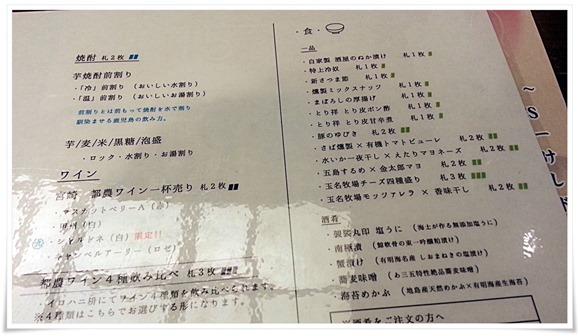 焼酎 札2枚
芋焼酎前割り
・「冷」前割り （おいしい水割り）
・「温」前割り （おいしいお湯割り）
前割りとは前もって焼酎を水で割り
馴染ませる鹿児島の飲み方。
芋/麦/米/黒糖/泡盛
・ロック・水割り・お湯割り
ワイン
宮崎 都農ワイン一杯売り 札2枚
・マスカットベリーA（赤）
・甲州（白）
・シャルドネ（白）限定!!
・キャンベルアーリー（ロゼ）
都農ワイン4種飲み比べ 札3枚
・イロハニ枡にてワイン4種類を飲み比べられます。
※4種類はこちらでお選びする形になります。
・食・
一品
・自家製 酒屋のぬか漬け 札1枚
・特上冷奴 札1枚
・新さつま節 札1枚
・燻製ミックスナッツ 札1枚
・まぼろしの厚揚げ 札1枚
・とり祥 とり皮ポン酢 札1枚
・とり祥 とり皮甘辛煮 札1枚
・豚のゆびき 札2枚
・さば燻製×有機トマトピューレ 札2枚
・水いか一夜干し×えたりマヨネーズ 札2枚
・五島するめ×金太郎マヨ 札2枚
・玉名牧場チーズ四種盛り 札3枚
・玉名牧場モッツァレラ × 香味干し 札2枚
酒肴
・製造丸印 塩うに （海士が作る無添加塩うに）
・南極漬 （鯨軟骨の東一吟醸粕漬け）
・蟹漬け （有明海名産 しおまねきの塩漬け）
・蕎麦味噌 （お三五特性絶品蕎麦味噌）
・海苔めかぶ （地島産天然めかぶ×有明海産生海苔）
※酒肴をご注文の方へ
～S－
けし